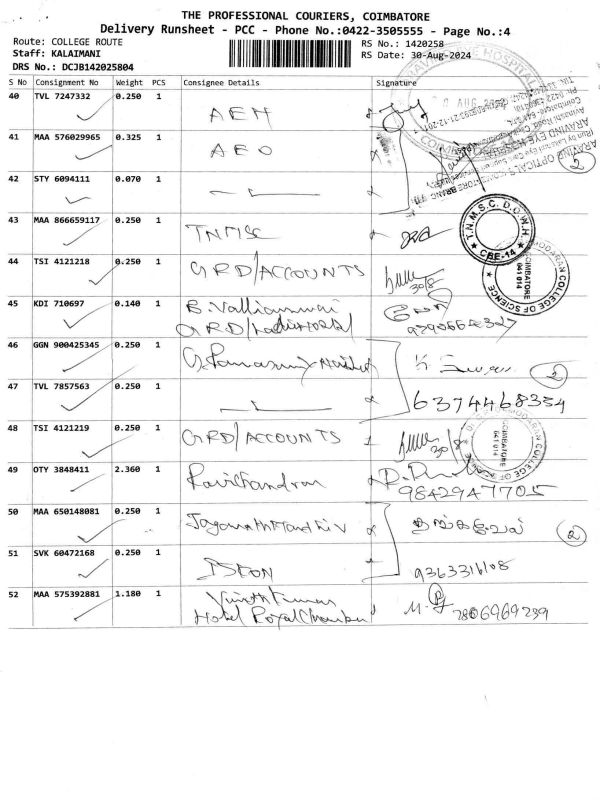 THE PROFESSIONAL COURIERS, COIMBATORE
Delivery Runsheet - PCC - Phone No.:0422-3505555 - Page No.:4
Route: COLLEGE ROUTE
RS No.: 1420258
Staff: KALAIMANI
RS Date: 30-Aug-2024
DRS No.: DCJB142025804
S No Consignment No Weight PCS Consignee Details Signature
40 TVL 7247332 0.250 1 AEH
41 MAA 576029965 0.325 1 AEO
42 STY 6094111 0.070 1
43 MAA 866659117 0.250 1 TNMSC
T.N.M.S.C. D.W.H. CBE-14
44 TSI 4121218 0.250 1 GRD/ACCOUNTS 30/8
COIMBATORE 641 014
COLLEGE OF SCIENCE
45 KDI 710697 0.140 1 B. Valliammai
GRD/
46 GGN 900425345 0.250 1
2
47 TVL 7857563 0.250 1 6374468354
48 TSI 4121219 0.250 1 GRD/ACCOUNTS 30/8
COIMBATORE 641 014
49 OTY 3848411 2.360 1 Ravichandran
9842947705
50 MAA 650148081 0.250 1
2
51 SVK 60472168 0.250 1 9363316108
52 MAA 575392881 1.180 1 Vinothkumar
Hotel Royal 7806969239